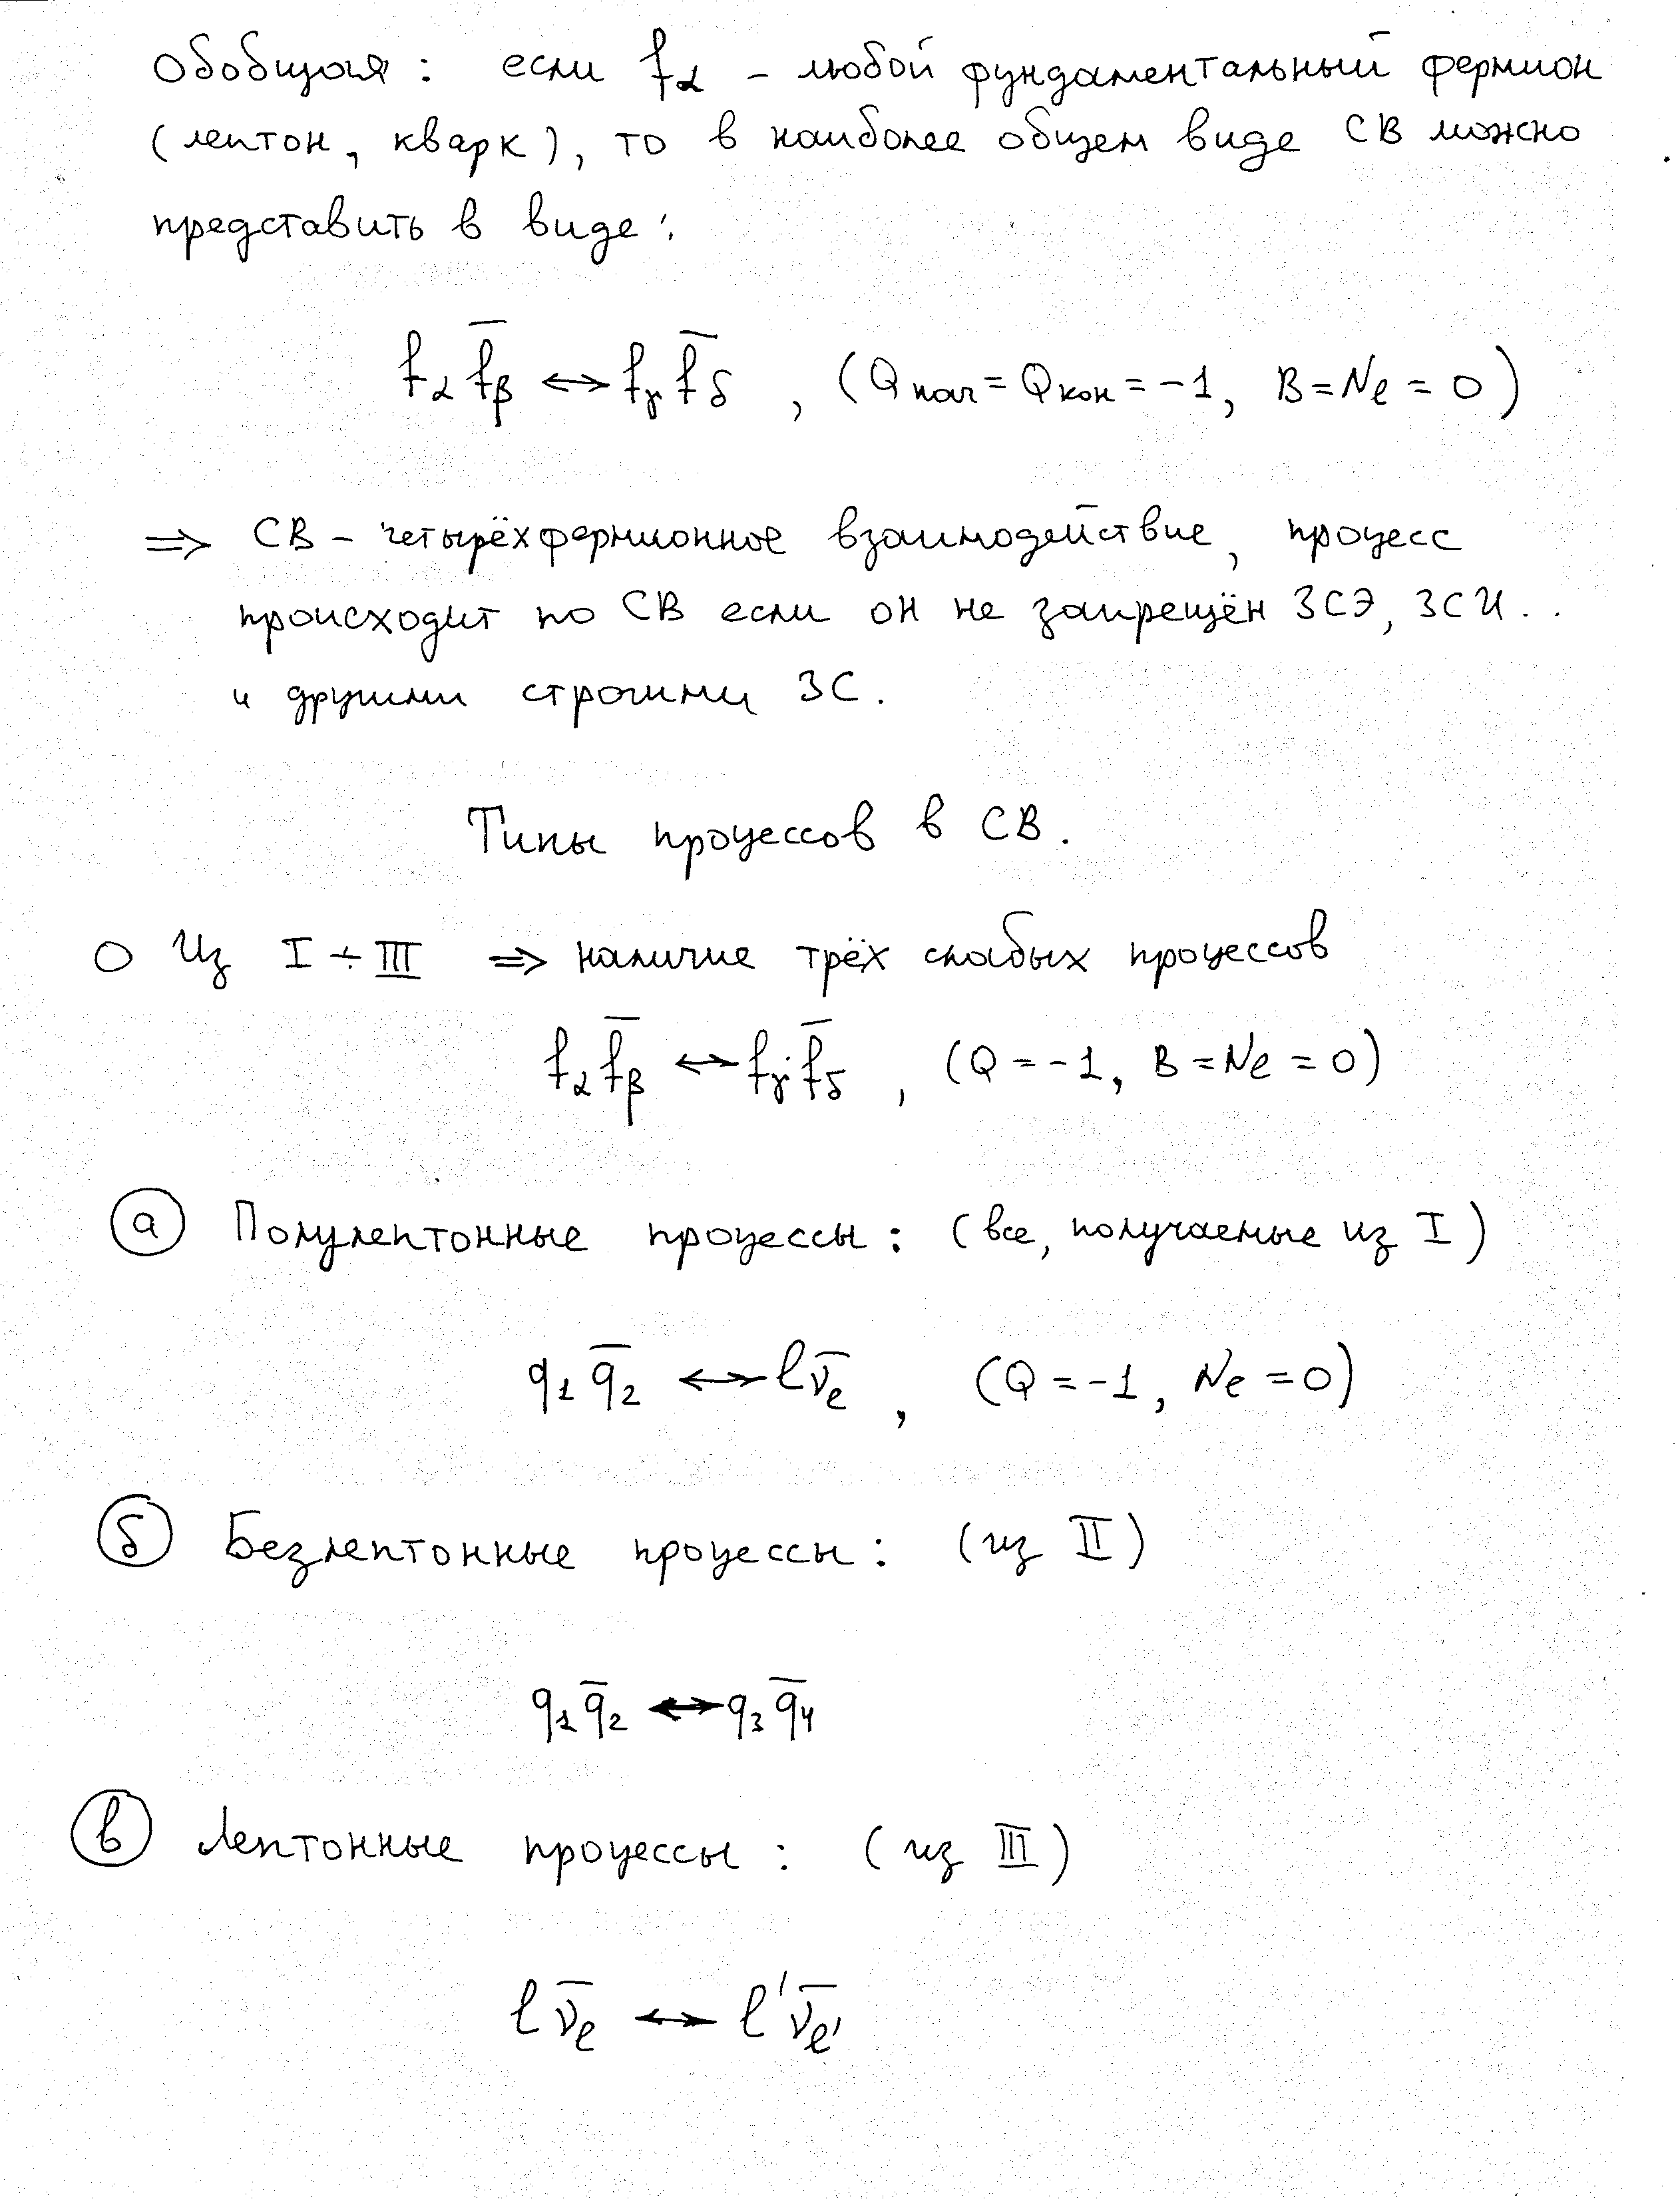 Обобщая: если f_α – любой фундаментальный фермион
(лептон, кварк), то в наиболее общем виде СВ можно
представить в виде:
f_α f̅_β ↔ f_γ f̅_δ , (Q_нач = Q_кон = -1, B = N_e = 0)
⇒ СВ – четырёхфермионное взаимодействие, процесс
происходит по СВ если он не запрещён ЗСЭ, ЗСИ..
и другими строгими ЗС.
Типы процессов в СВ.
О Из I ÷ III ⇒ наличие трёх слабых процессов
f_α f̅_β ↔ f_γ f̅_δ , (Q = -1, B = N_e = 0)
а Полулептонные процессы: (все, получаемые из I)
q_1 q̅_2 ↔ l ν̅_e , (Q = -1, N_e = 0)
б Безлептонные процессы: (из II)
q_1 q̅_2 ↔ q_3 q̅_4
в Лептонные процессы: (из III)
l ν̅_e ↔ l' ν̅_e'